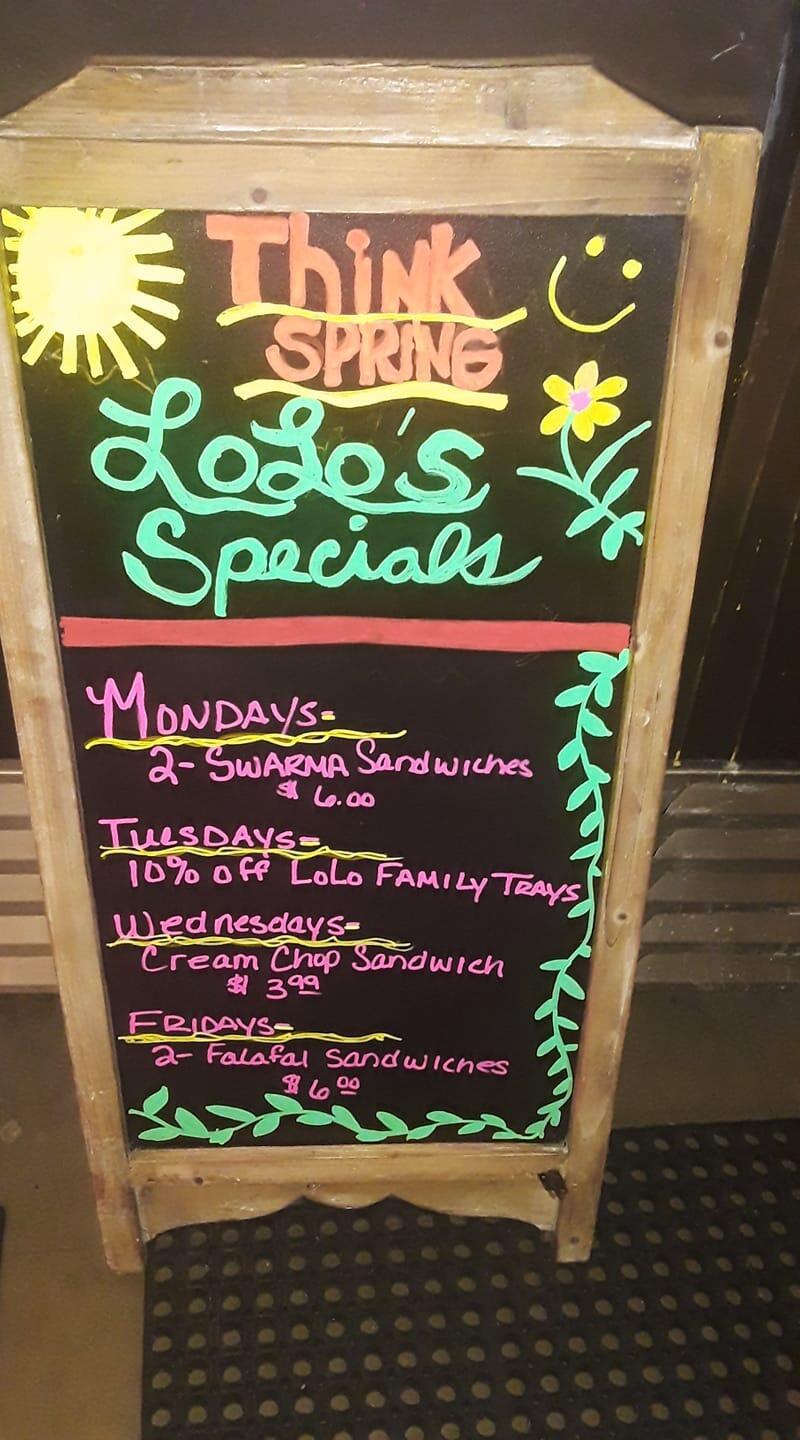 Think
SPRING
LoLo's
Specials
MONDAYS-
2- SWARMA Sandwiches
$ 6.00
TUESDAYS-
10% off LoLo FAMILY TRAYS
Wednesdays-
Cream Chop Sandwich
$ 3.99
FRIDAYS-
2- Falafal Sandwiches
$ 6.00